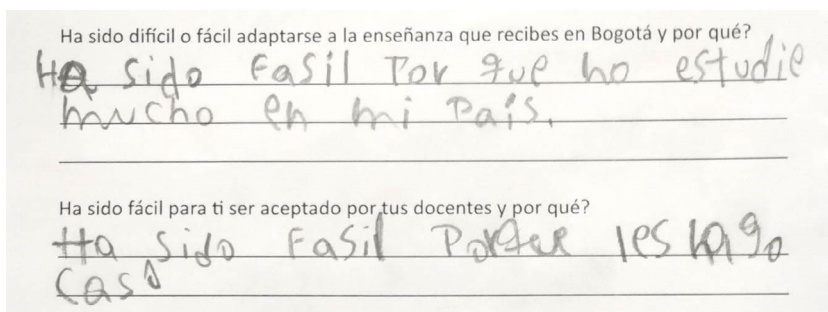 Ha sido difícil o fácil adaptarse a la enseñanza que recibes en Bogotá y por qué?
Ha sido Fasil Por que no estudie
mucho en mi País.
Ha sido fácil para ti ser aceptado por tus docentes y por qué?
Ha sido Fasil Porque les hago
Caso